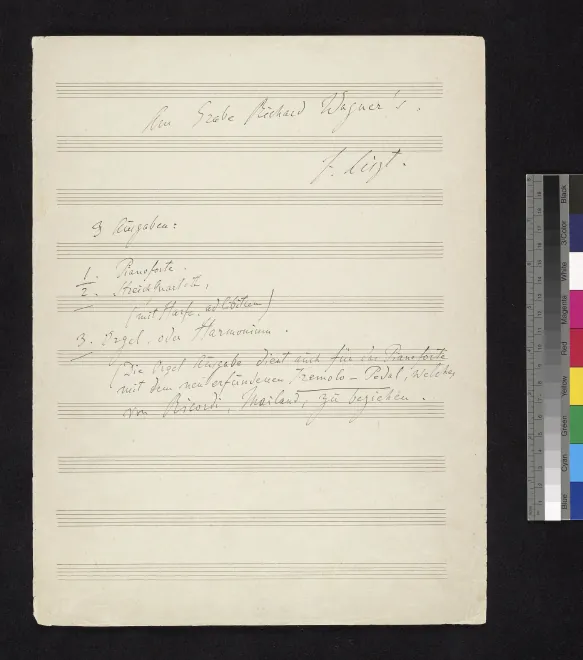 Am Grabe Richard Wagner's.
F. Liszt.
3 Ausgaben:
1. Pianoforte.
2. Streichquartett,
(mit Harfe, ad libitum)
3. Orgel, oder Harmonium.
(Die Orgel Ausgabe dient auch für das Pianoforte
mit dem neuerfundenen Tremolo-Pedal, welches
von Ricordi, Mailand, zu beziehen.
Black
3/Color
White
Magenta
Red
Yellow
Green
Cyan
Blue